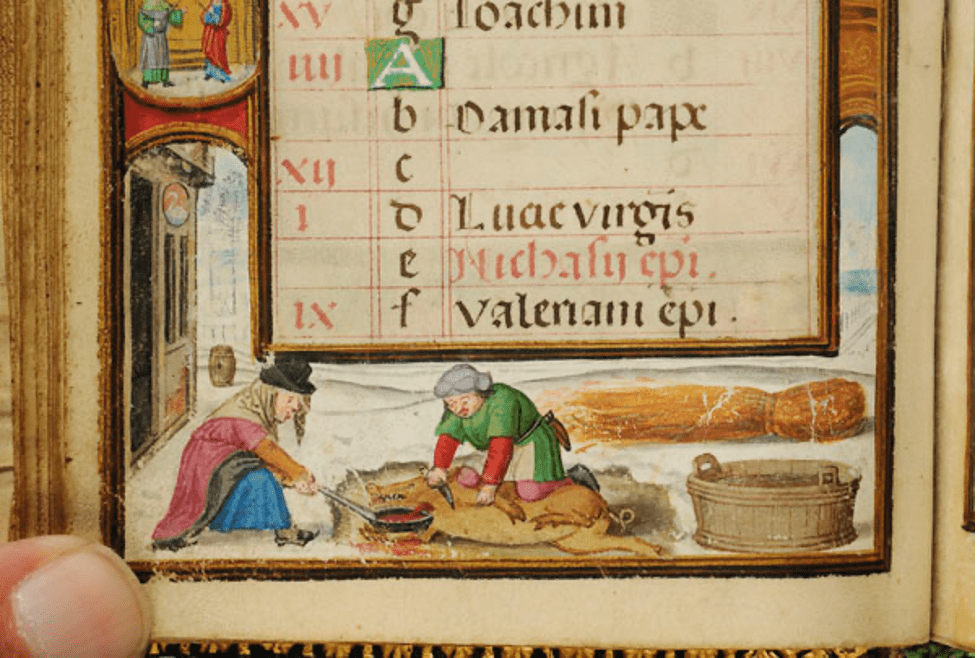 xv g Ioachim
iiij A
b Damasi pape
xij c
i d Lucie virgis
e Nichasij epi.
ix f Valeriani epi.